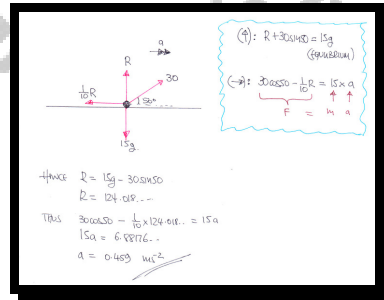 a
R
30
1/10 R
50°
15g
(↑): R + 30sin50 = 15g
(EQUILIBRIUM)
(→): 30cos50 - 1/10 R = 15 × a
F = m a
HENCE R = 15g - 30sin50
R = 124.018...
THUS 30cos50 - 1/10 × 124.018... = 15a
15a = 6.88176...
a = 0.459 ms⁻²